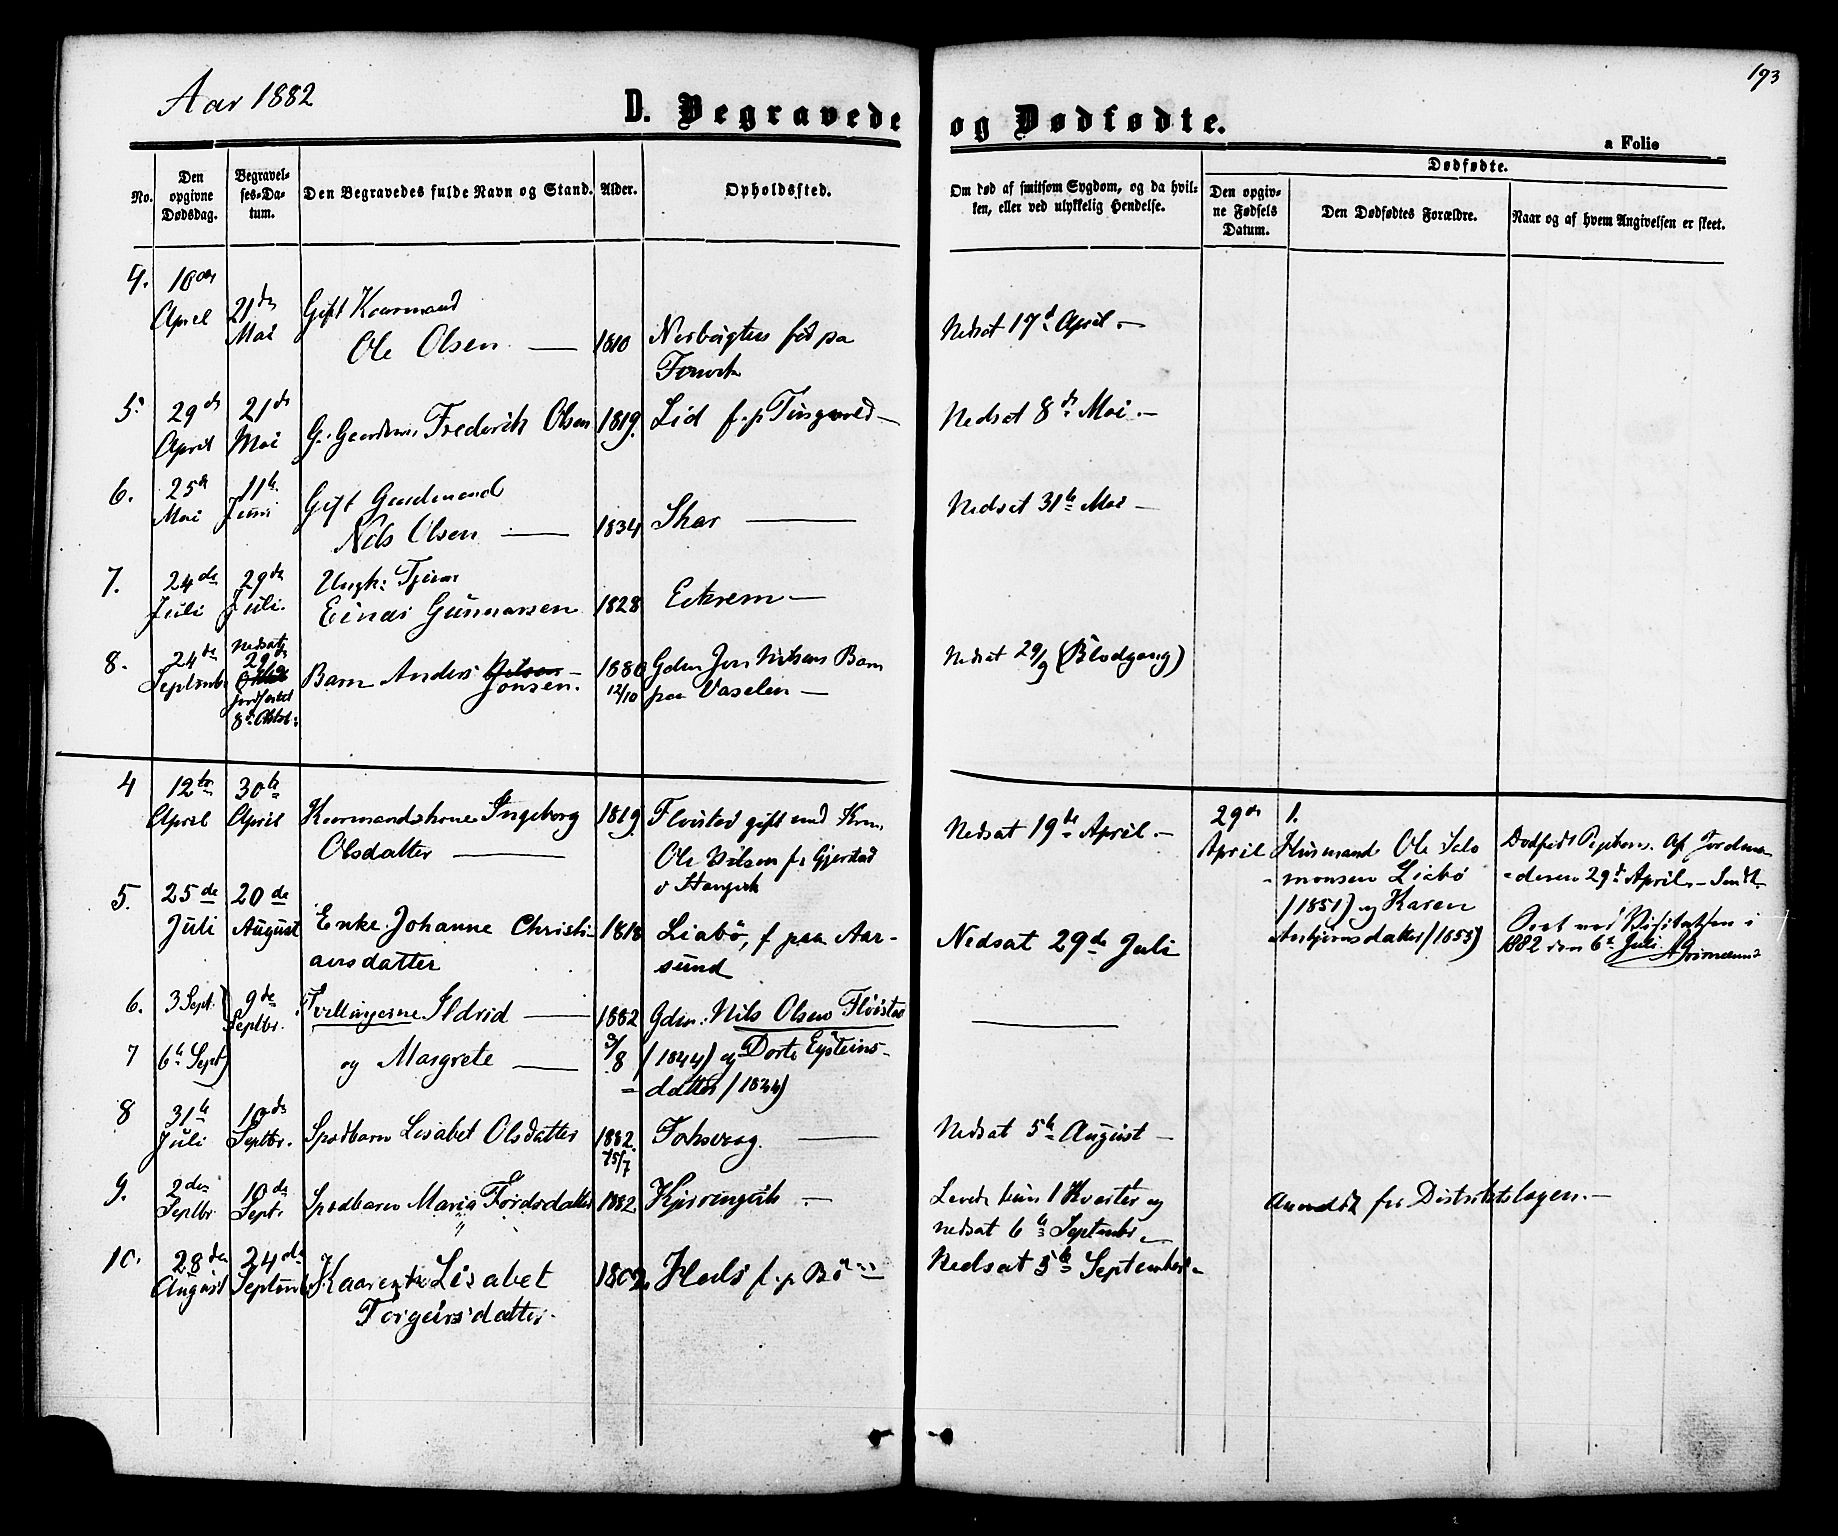 193
Aar 1882
D. Begravede og Dødfødte.
a Folio
No.
Den opgivne Dødsdag.
Begravelses-Datum.
Den Begravedes fulde Navn og Stand.
Alder.
Opholdssted.
Om død af smitsom Sygdom, og da hvilken, eller ved ulykkelig Hendelse.
Dødfødte.
Den opgivne Fødsels Datum.
Den Dødfødtes Forældre.
Naar og af hvem Angivelsen er skeet.
4. April 21de Mai Gift Kaarmand
Ole Olsen 1810 født paa
Nedsat 17d April
5. 29de April 21de Mai Frederik Olsen 1819 Lid f. p. Tingvold
Nedsat 8de Mai
6. 25de Mai 11te Juni Gift Gaardmand
Nils Olsen 1834 Skar
Nedsat 31te Mai
7. 24de Juli 29de Juli Ungk:
Einar Gunnarsen 1828 Eikrem
8. 24de Septembr Nedsat 29de
Jordfæstet 8de Oktbr:
Barn Anders Nilsen Jonsen. 1880 12/10 Gdm Jon Nilsens Barn
paa Vaselen
Nedsat 29/9 (Blodgang)
4 12te April 30te April Kaarmandskone Ingeborg
Olsdatter 1819 Fløistad gift med
Ole Nilsen f. Gjerstad
Nedsat 19de April
29de April 1. Husmand Ole Salomonsen Liabø
(1851) og Karen
datter (1855)
Dødfødt Af Jordmoderen 29d April
Seet ved Visitatsen i
1882 den 6te Juli
5. 25de Juli 20de August Enke Johanne Christiansdatter 1818 Liabø, f paa Aarsund
Nedsat 29de Juli
6. 3 Sept. 9de Septbr. Tvillingerne Ildrid 1882 Gdm: Nils Olsen Fløistad
7 6te Sept og Margrete 2/8 (1844) og Dorte Eysteinsdatter (1844)
8 31te Juli 10de Septbr. Spædbarn Lisabet Olsdatter 1882 15/7
Nedsat 5te August
9. 2den Septbr 10de Sept. Spædbarn Maria datter 1882 Kjørsingvik
Levede kun 1 Kvarter og
nedsat 6te Septembr
Anmeldt for Distriktslægen.
10. 28de August 24de Septembr Lisabet
Torgeirsdatter 1802 f. p. Bø
Nedsat 5te September